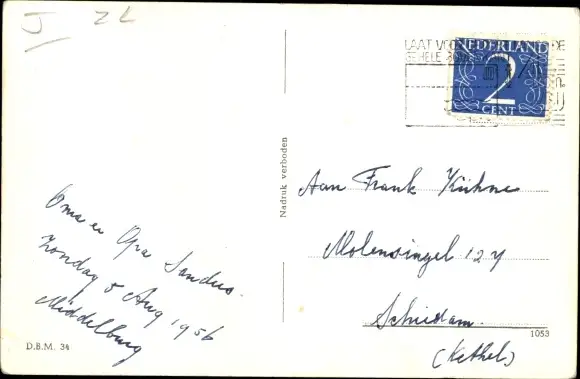 J ZL
LAAT VOO DE
GEHELE
NEDERLAND
2
CENT
Nadruk verboden
Aan Frank Kühne
Molensingel 127
Schiedam.
(Kethel)
Oma en Opa Sanders.
Zondag 5 Aug 1956
Middelburg
D.B.M. 34
1053